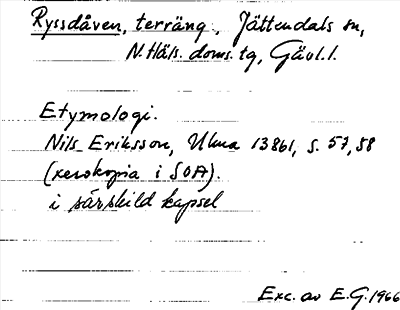 Ryssdåven, terräng, Jättendals sn,
N. Häls. doms. tg, Gävl. l.
Etymologi.
Nils Eriksson, Ulma 13861, s. 57, 58
(xerokopia i SOA).
i särskild kapsel
Exc. av E.G. 1966